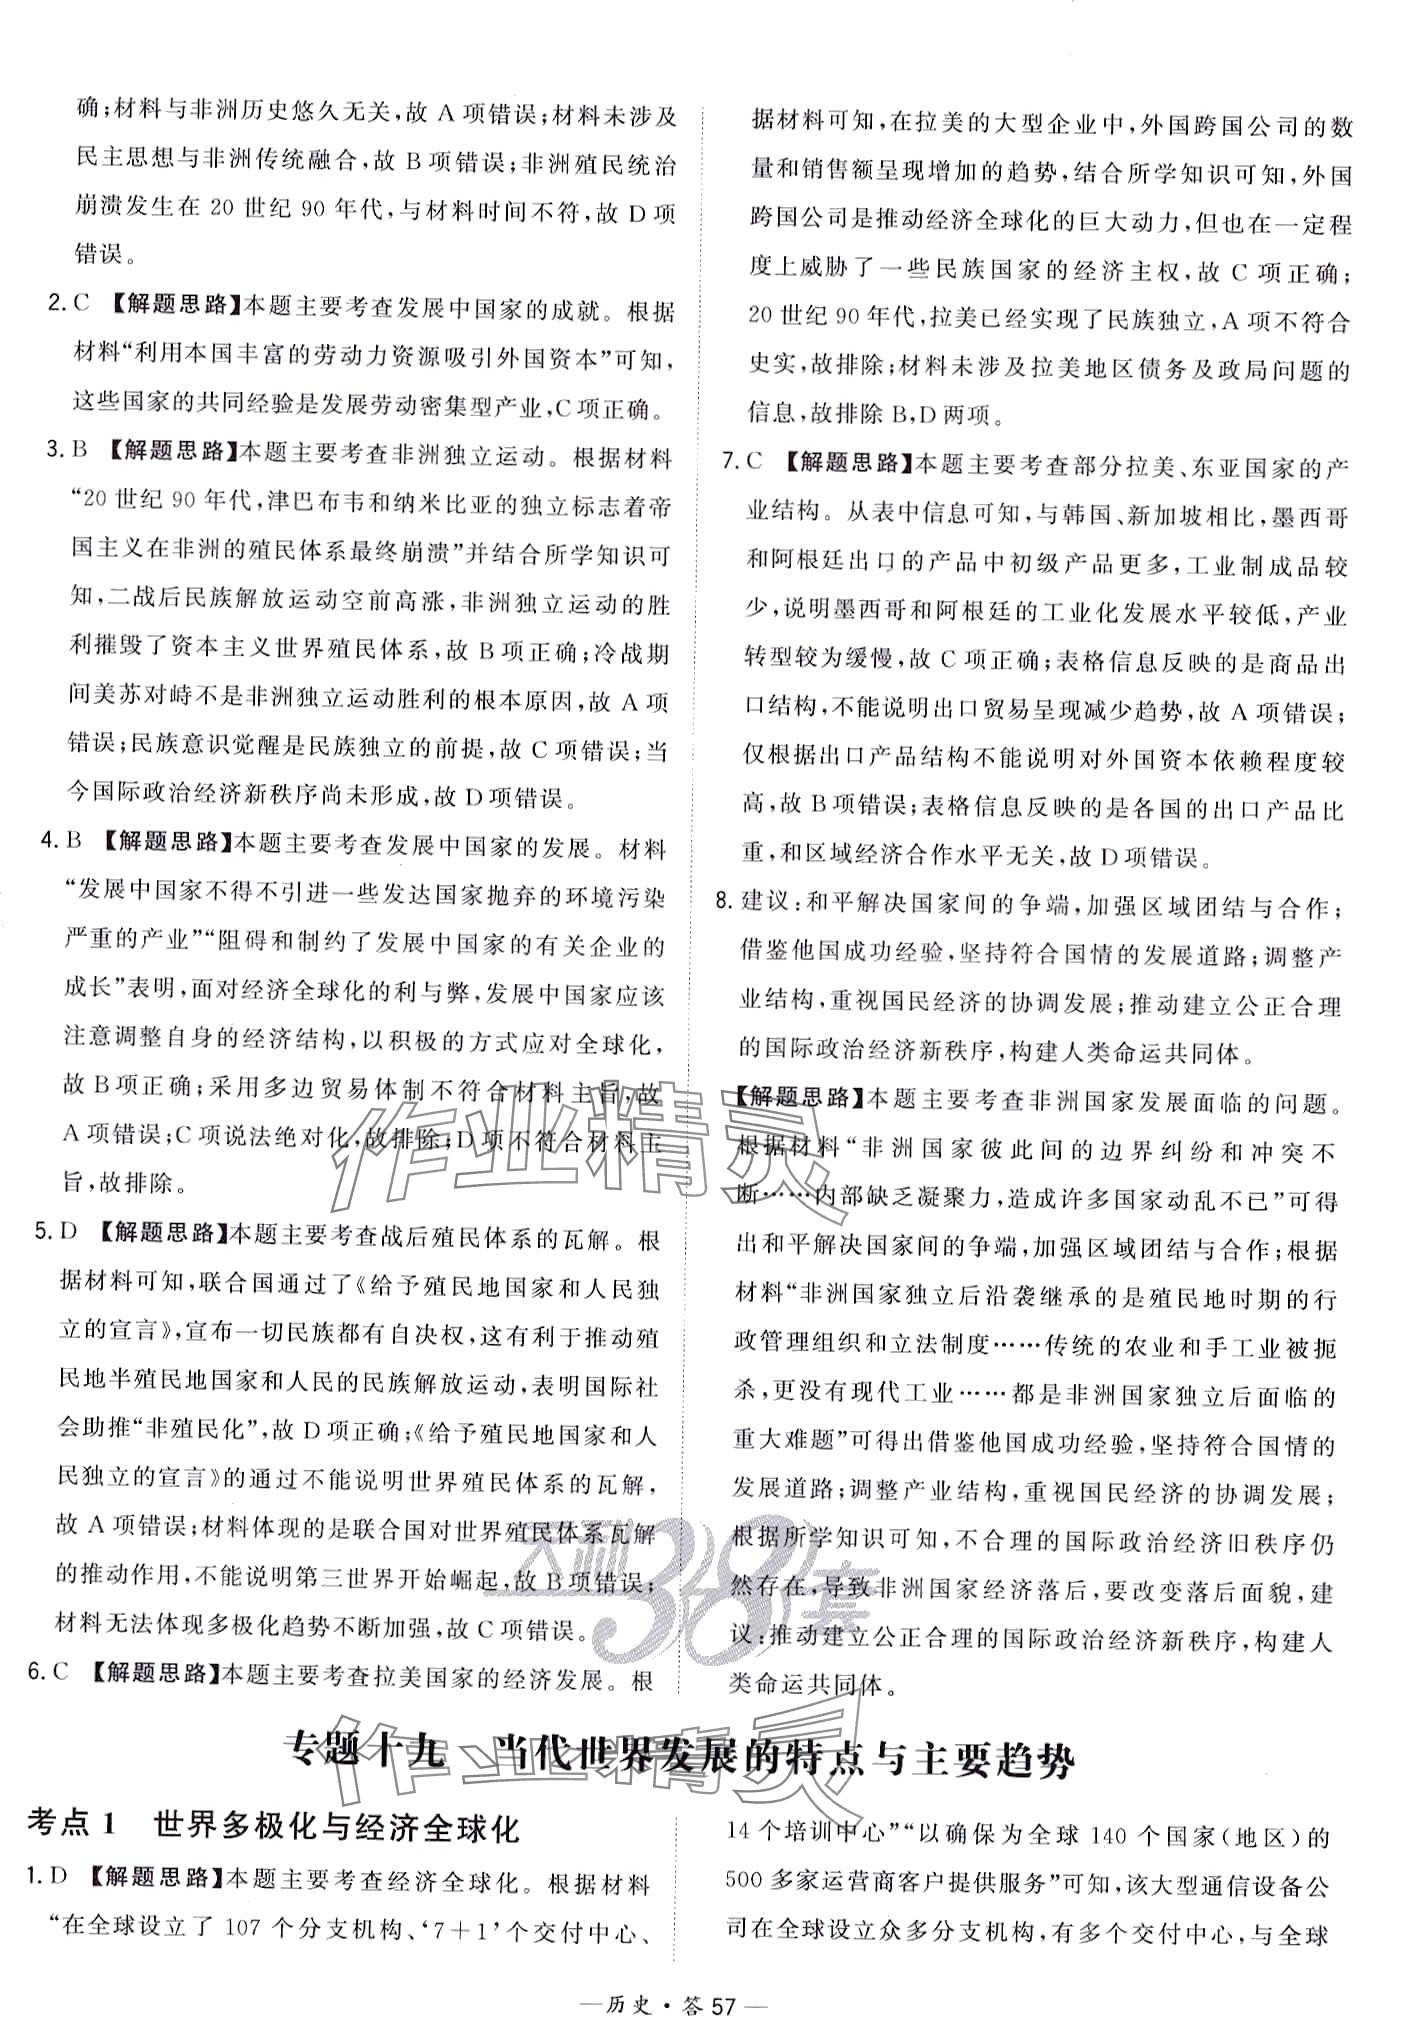 确;材料与非洲历史悠久无关,故 A 项错误;材料未涉及
民主思想与非洲传统融合,故 B 项错误;非洲殖民统治
崩溃发生在 20 世纪 90 年代,与材料时间不符,故 D 项
错误。
2. C 【解题思路】本题主要考查发展中国家的成就。根据
材料“利用本国丰富的劳动力资源吸引外国资本”可知,
这些国家的共同经验是发展劳动密集型产业,C 项正确。
3. B 【解题思路】本题主要考查非洲独立运动。根据材料
“20 世纪 90 年代,津巴布韦和纳米比亚的独立标志着帝
国主义在非洲的殖民体系最终崩溃”并结合所学知识可
知,二战后民族解放运动空前高涨,非洲独立运动的胜
利摧毁了资本主义世界殖民体系,故 B 项正确;冷战期
间美苏对峙不是非洲独立运动胜利的根本原因,故 A 项
错误;民族意识觉醒是民族独立的前提,故 C 项错误;当
今国际政治经济新秩序尚未形成,故 D 项错误。
4. B 【解题思路】本题主要考查发展中国家的发展。材料
“发展中国家不得不引进一些发达国家抛弃的环境污染
严重的产业”“阻碍和制约了发展中国家的有关企业的
成长”表明,面对经济全球化的利与弊,发展中国家应该
注意调整自身的经济结构,以积极的方式应对全球化,
故 B 项正确;采用多边贸易体制不符合材料主旨,故
A 项错误;C 项说法绝对化,故排除;D 项不符合材料主
旨,故排除。
5. D 【解题思路】本题主要考查战后殖民体系的瓦解。根
据材料可知,联合国通过了《给予殖民地国家和人民独
立的宣言》,宣布一切民族都有自决权,这有利于推动殖
民地半殖民地国家和人民的民族解放运动,表明国际社
会助推“非殖民化”,故 D 项正确;《给予殖民地国家和人
民独立的宣言》的通过不能说明世界殖民体系的瓦解,
故 A 项错误;材料体现的是联合国对世界殖民体系瓦解
的推动作用,不能说明第三世界开始崛起,故 B 项错误;
材料无法体现多极化趋势不断加强,故 C 项错误。
6. C 【解题思路】本题主要考查拉美国家的经济发展。根
据材料可知,在拉美的大型企业中,外国跨国公司的数
量和销售额呈现增加的趋势,结合所学知识可知,外国
跨国公司是推动经济全球化的巨大动力,但也在一定程
度上威胁了一些民族国家的经济主权,故 C 项正确;
20 世纪 90 年代,拉美已经实现了民族独立,A 项不符合
史实,故排除;材料未涉及拉美地区债务及政局问题的
信息,故排除 B,D 两项。
7. C 【解题思路】本题主要考查部分拉美、东亚国家的产
业结构。从表中信息可知,与韩国、新加坡相比,墨西哥
和阿根廷出口的产品中初级产品更多,工业制成品较
少,说明墨西哥和阿根廷的工业化发展水平较低,产业
转型较为缓慢,故 C 项正确;表格信息反映的是商品出
口结构,不能说明出口贸易呈现减少趋势,故 A 项错误;
仅根据出口产品结构不能说明对外国资本依赖程度较
高,故 B 项错误;表格信息反映的是各国的出口产品比
重,和区域经济合作水平无关,故 D 项错误。
8. 建议:和平解决国家间的争端,加强区域团结与合作;
借鉴他国成功经验,坚持符合国情的发展道路;调整产
业结构,重视国民经济的协调发展;推动建立公正合理
的国际政治经济新秩序,构建人类命运共同体。
【解题思路】本题主要考查非洲国家发展面临的问题。
根据材料“非洲国家彼此间的边界纠纷和冲突不
断……内部缺乏凝聚力,造成许多国家动乱不已”可得
出和平解决国家间的争端,加强区域团结与合作;根据
材料“非洲国家独立后沿袭继承的是殖民地时期的行
政管理组织和立法制度……传统的农业和手工业被扼
杀,更没有现代工业……都是非洲国家独立后面临的
重大难题”可得出借鉴他国成功经验,坚持符合国情的
发展道路;调整产业结构,重视国民经济的协调发展;
根据所学知识可知,不合理的国际政治经济旧秩序仍
然存在,导致非洲国家经济落后,要改变落后面貌,建
议:推动建立公正合理的国际政治经济新秩序,构建人
类命运共同体。
作业精灵
天利38套
作业精灵
专题十九 当代世界发展的特点与主要趋势
考点 1 世界多极化与经济全球化
1. D 【解题思路】本题主要考查经济全球化。根据材料
“在全球设立了 107 个分支机构、‘7+1’个交付中心、
14 个培训中心”“以确保为全球 140 个国家(地区)的
500 多家运营商客户提供服务”可知,该大型通信设备公
司在全球设立众多分支机构,有多个交付中心,与全球
—历史·答 57—